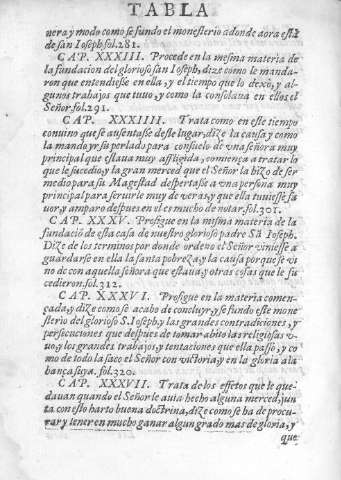 TABLA
nera y modo como se fundo el monesterio adonde aora està
de san Ioseph. fol. 281.
CAP. XXXIII. Procede en la mesma materia de
la fundacion del glorioso san Ioseph, dize como le manda-
ron que entendiesse en ella, y el tiempo que lo dexò, y al-
gunos trabajos que tuuo, y como la consolaua en ellos el
Señor. fol. 291.
CAP. XXXIIII. Trata como en este tiempo
conuino que se ausentasse deste lugar, dize la causa y como
la mando yr su perlado para consuelo de vna señora muy
principal que estaua muy affligida, comiença a tratar lo
que le sucedio, y la gran merced que el Señor la hizo de ser
medio para su Magestad despertasse a vna persona muy
principal para seruirle muy de veras, y que ella tuuiesse fa
uor, y amparo despues en el es mucho de notar. fol. 301.
CAP. XXXV. Prosigue en la misma materia de la
fundaciõ de esta casa de nuestro glorioso padre Sã Ioseph.
Dize de los terminos por donde ordeno el Señor viniesse a
guardarse en ella la santa pobreza, y la causa porque se vi
no de con aquella señora que estaua, y otras cosas que le su
cedieron. fol. 312.
CAP. XXXVI. Prosigue en la materia comen-
çada, y dize como se acabo de concluyr, y se fundo este mone
sterio del glorioso S. Ioseph, y las grandes contradiciones, y
persecuciones que despues de tomar abito las religiosas
uo, y los grandes trabajos, y tentaciones que ella passo, y co
mo de todo la saco el Señor con victoria, y en la gloria ala
bança suya. fol. 320.
CAP. XXXVII. Trata de los effetos que le que-
dauan quando el Señor le auia hecho alguna merced, jun
ta con esto harto buena doctrina, dize como se ha de procu-
rar, y tener en mucho ganar algun grado mas de gloria, y
que